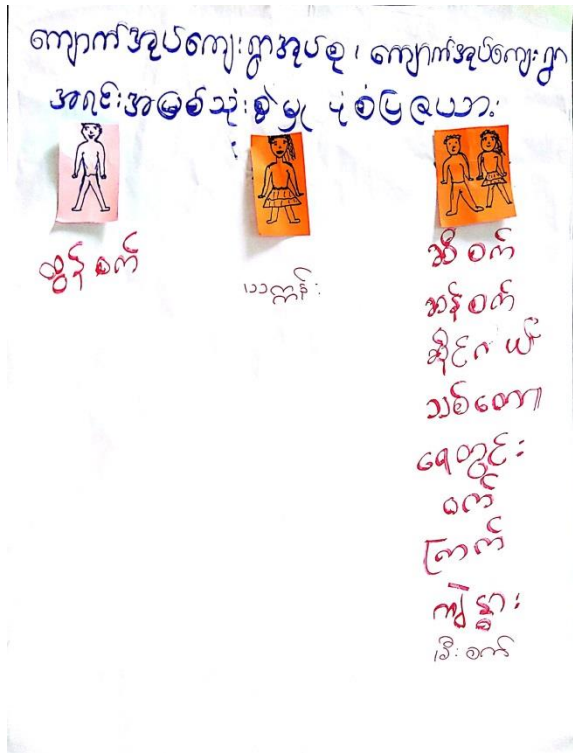 ကျောက်အုပ်ကျေးရွာအုပ်စု၊ ကျောက်အုပ်ကျေးရွာ
အရင်းအမြစ်သုံးစွဲမှု ပုံစံပြဇယား
ထွန်စက်
ယာက္ကန်း
ဆီစက်
အန်စက်
ဆိုင်ကယ်
သစ်တော
ရေတွင်း
ဝက်
ကြက်
ကျွဲနွား